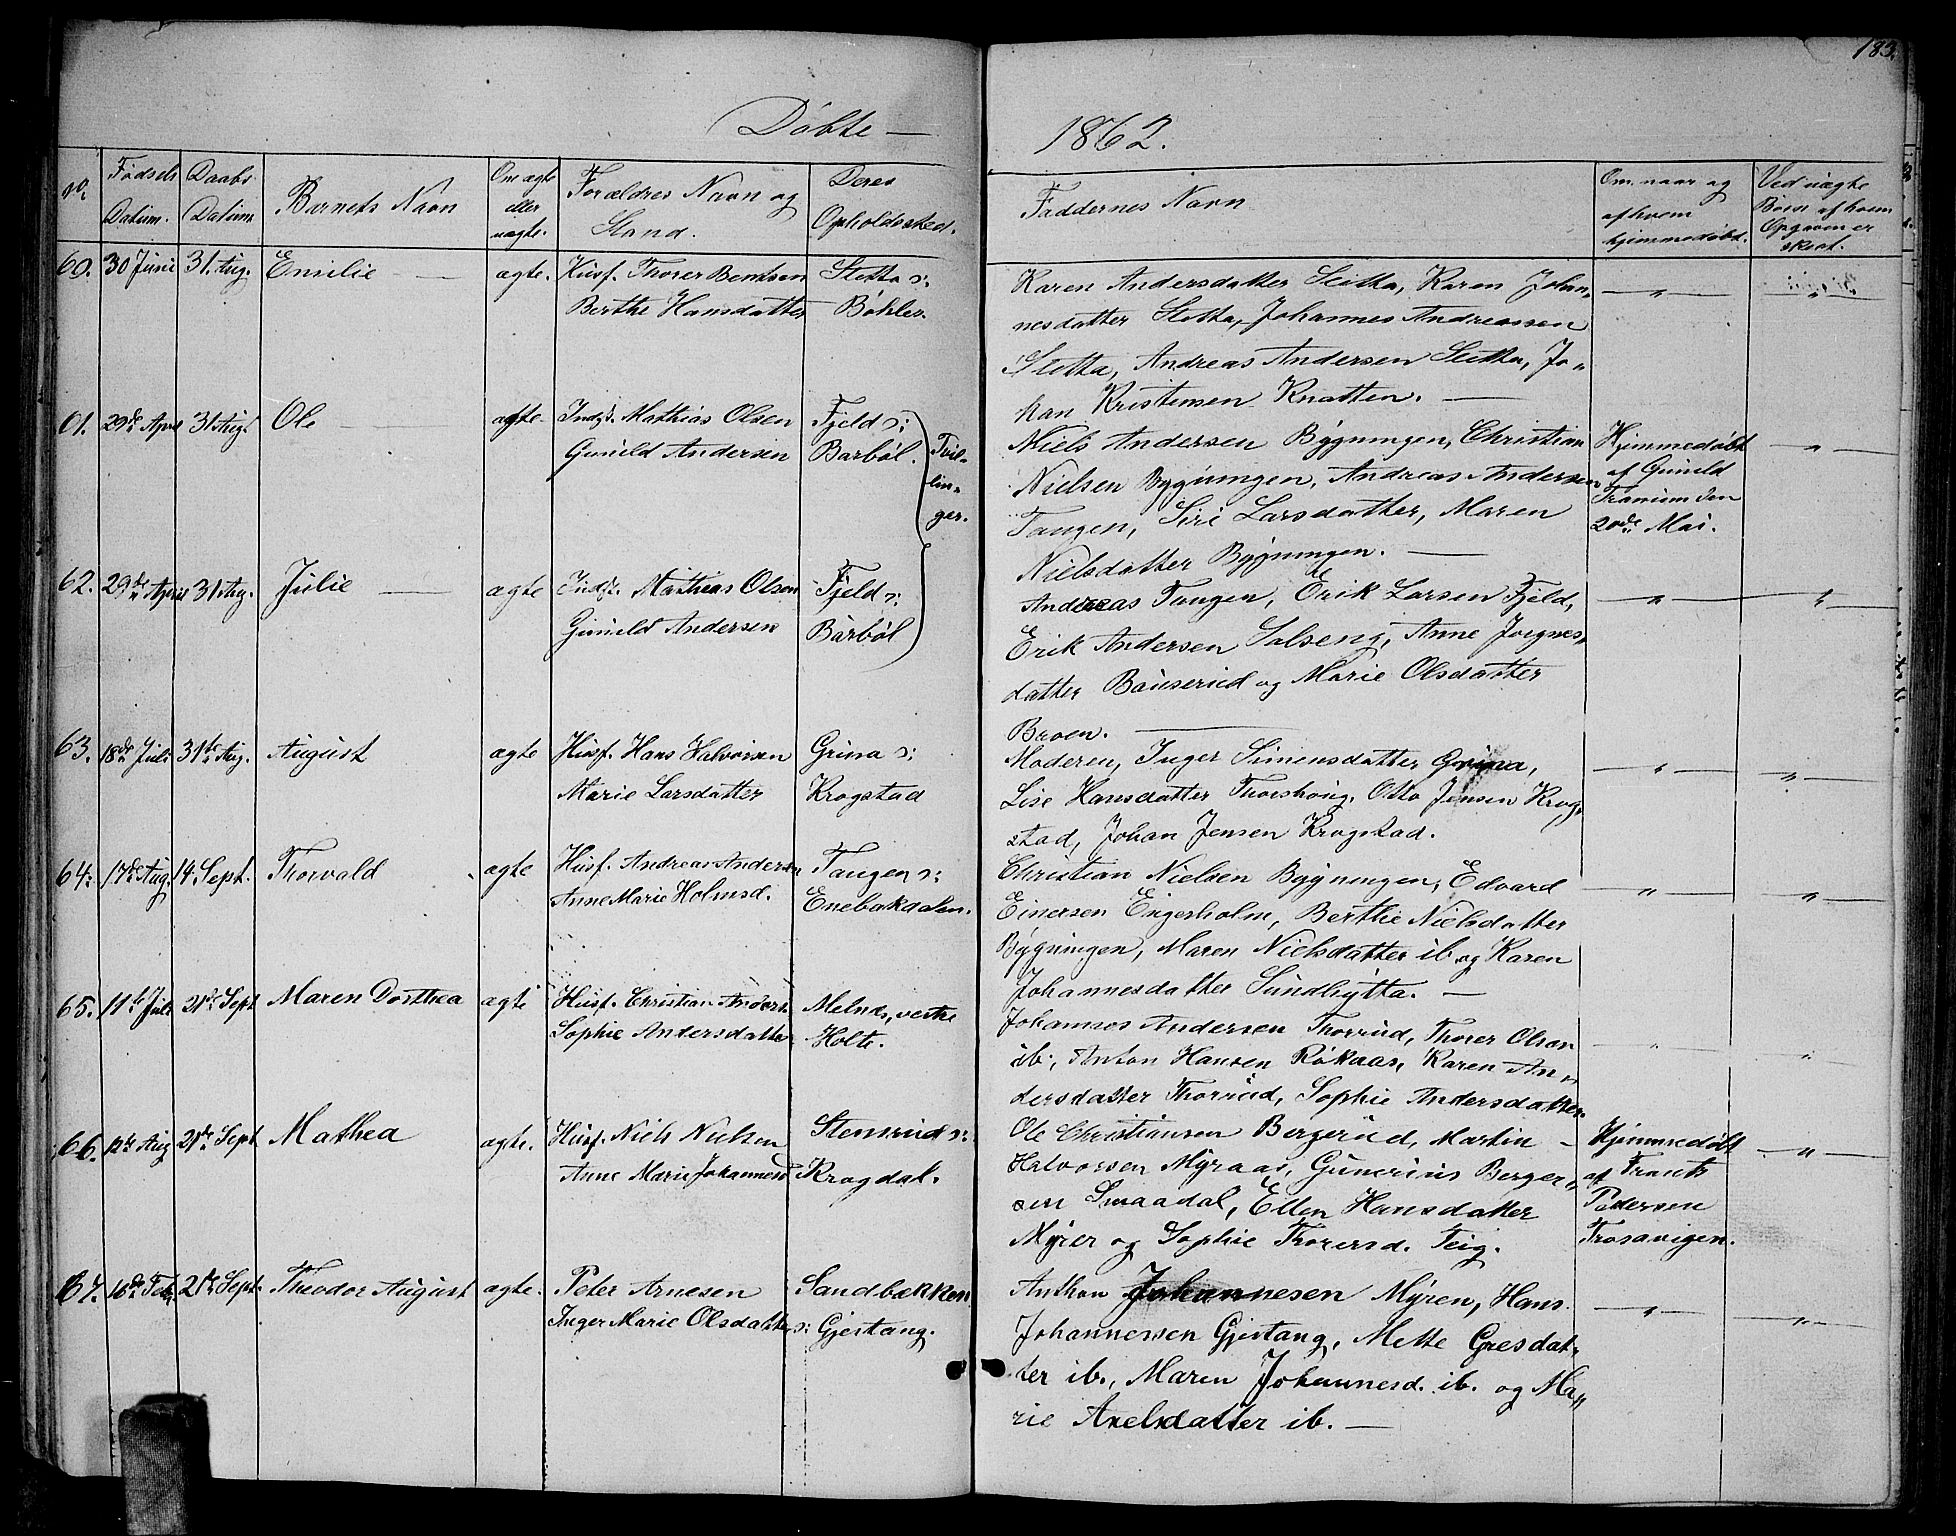 183.
Döbte — 1862.
No. Fødsels Datum. Daabs Datum Barnets Navn Om ægte eller uægte. Forældres Navn og Stand. Deres Opholdssted. Faddernes Navn Om, naar og af hvem hjemmedøbt. Ved uægte Børn af hvem Opgaven er skeet.
60. 30 Juni 31. Aug. Emilie — ægte. Husf. Thorer Bentsen Sletta ɔ:
Berthe Hansdatter Bøhler.
Karen Andersdatter Sletta, Karen Johan„ — „ — — „ —
nesdatter Sletta, Johannes Andreassen
Sletta, Andreas Andersen Sletta, Jo„
han Kristensen Knatten. —
61. 29de April 31 Aug. Ole — ægte. Inds. Mathias Olsen Fjeld ɔ:
Gunild Andersen Barbøl. Tvil„
lin„
ger.
Niels Andersen Bygningen, Christian Hjemmedøbt — „ —
Nielsen Bygningen, Andreas Andersen af Gunild
Tangen, Siri Larsdatter, Maren Tranium den
Nielsdatter Bygningen. — 20de Mai.
62. 29de April 31 Aug. Julie — ægte Inds. Mathias Olsen Fjeld ɔ:
Gunild Andersen Barbøl
Andreas Tangen, Erik Larsen Fjeld, — „ — — „ —
Erik Andersen Solseng, Anne Joegnes„
datter Bauserud og Marie Olsdatter
Broen. —
63. 18de Juli 31te Aug. August ægte Husf. Hans Halvorsen Grina ɔ:
Marie Larsdatter Krogstad
Moderen, Inger Simensdatter Grina, — „ — — „ —
Lise Hansdatter Thorshoug, Otto Jensen Krog„
stad, Johan Jensen Krogstad.
64. 17de Aug. 14. Sept. Thorvald ægte Husf. Andreas Andersen Tangen ɔ:
Anne Marie Holmsd. Enebakdalen.
Christian Nielsen Bygningen, Edvard — „ — — „ —
Einersen Engesholm, Berthe Nielsdatter
Bygningen, Maren Nielsdatter ib. og Karen
Johannesdatter Sundhytta. —
65. 11te Juli 21de Sept Maren Dorthea ægte Husf. Christian Anders. Melnes, vestre
Sophie Andersdatter Holte.
Johannes Andersen Thorrud, Thorer Olsen — „ — „
ib., Anton Hansen Røkaas, Karen An„
dersdatter Thorrud, Sophie Andersdatter.
66. 12te Aug 21de Sept. Mathea ægte. Husf. Niels Nielsen Stensrud ɔ:
Anne Marie Johannesd. Krogdal.
Ole Christiansen Bergerud, Martin — Hjemmedøbt — „ —
Halvorsen Myraas, Gunerius Berger„ af Frants
sen Smaadal, Ellen Hansdatter Pedersen
Myrer og Sophie Thorersd. Teig. Trosavigen.
67. 16de Feb. 21de Sept. Theodor August ægte. Peter Arnesen Sandbækken
Inger Marie Olsdatter ɔ: Gjestang.
Anthon Johannesen Myren, Hans — „ — — „ —
Johannessen Gjestang, Mette Gresdat„
ter ib., Maren Johannesd. ib. og Ma„
rie Axelsdatter ib. —